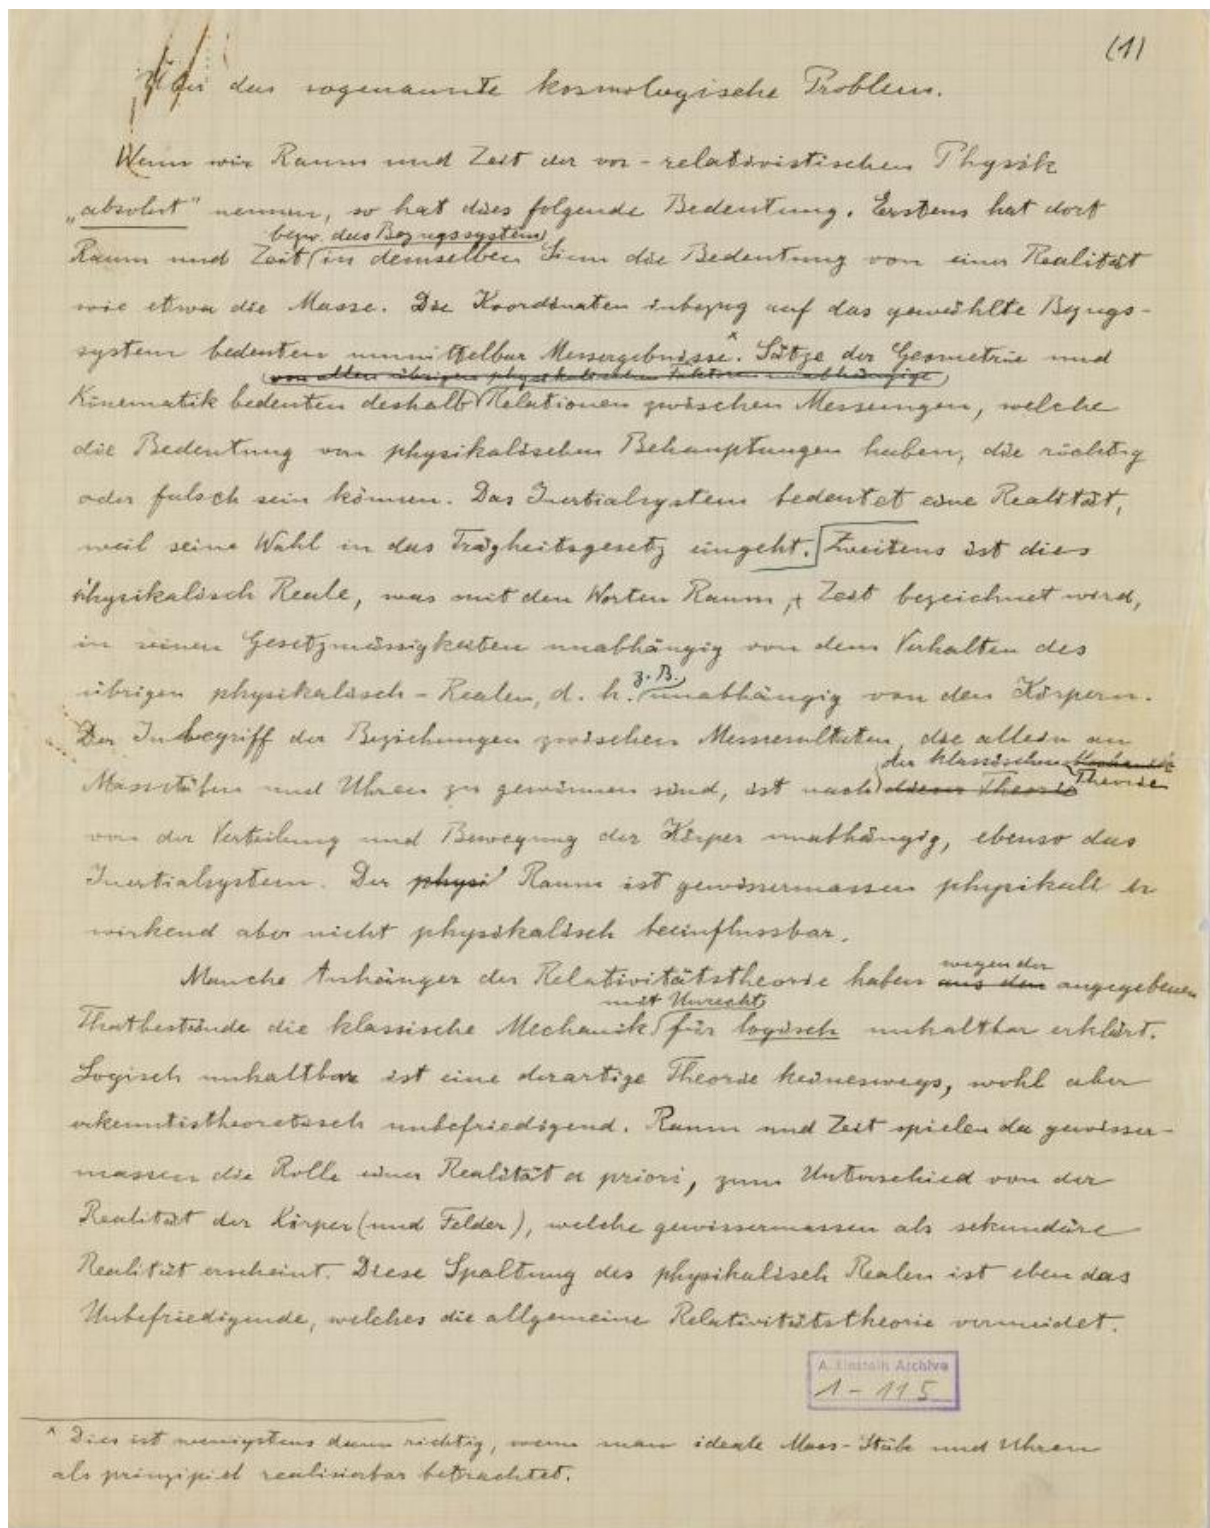 (1)
das sogenannte kosmologische Problem.
Wenn wir Raum und Zeit der vor-relativistischen Physik
„absolut" nennen, so hat dies folgende Bedeutung. Erstens hat dort
bezw. das Bezugssystem
Raum und Zeit in demselben Sinn die Bedeutung von einer Realität
wie etwa die Masse. Die Koordinaten inbezug auf das gewählte Bezugs-
system bedeuten unmittelbar Messergebnisse.x Sätze der Geometrie und
von allen übrigen physikalischen Faktoren unabhängige
Kinematik bedeuten deshalb Relationen zwischen Messungen, welche
die Bedeutung von physikalischen Behauptungen haben, die richtig
oder falsch sein können. Das Inertialsystem bedeutet eine Realität,
weil seine Wahl in das Trägheitsgesetz eingeht. Zweitens ist dies
physikalisch Reale, was mit den Worten Raum, + Zeit bezeichnet wird,
in seinen Gesetzmässigkeiten unabhängig von dem Verhalten des
z. B.
übrigen physikalisch-Realen, d. h. unabhängig von den Körpern.
Der Inbegriff der Beziehungen zwischen Messresultaten, die allein an
der klassischen Mechanik
Massstäben und Uhren zu gewinnen sind, ist nach dieser Theorie Theorie
von der Verteilung und Bewegung der Körper unabhängig, ebenso das
Inertialsystem. Der physi Raum ist gewissermassen physikali
wirkend aber nicht physikalisch beeinflussbar.
wegen der
Manche Anhänger der Relativitätstheorie haben aus den angegebenen
mit Unrecht
Thatbestände die klassische Mechanik für logisch unhaltbar erklärt.
Logisch unhaltbar ist eine derartige Theorie keineswegs, wohl aber
erkenntistheoretisch unbefriedigend. Raum und Zeit spielen da gewisser-
massen die Rolle einer Realität a priori, zum Unterschied von der
Realität der Körper (und Felder), welche gewissermassen als sekundäre
Realität erscheint. Diese Spaltung des physikalisch Realen ist eben das
Unbefriedigende, welches die allgemeine Relativitätstheorie vermeidet.
A. Einstein Archive
1-115
x Dies ist wenigstens dann richtig, wenn man ideale Mass-Stäbe und Uhren
als prinzipiel realisierbar betrachtet.